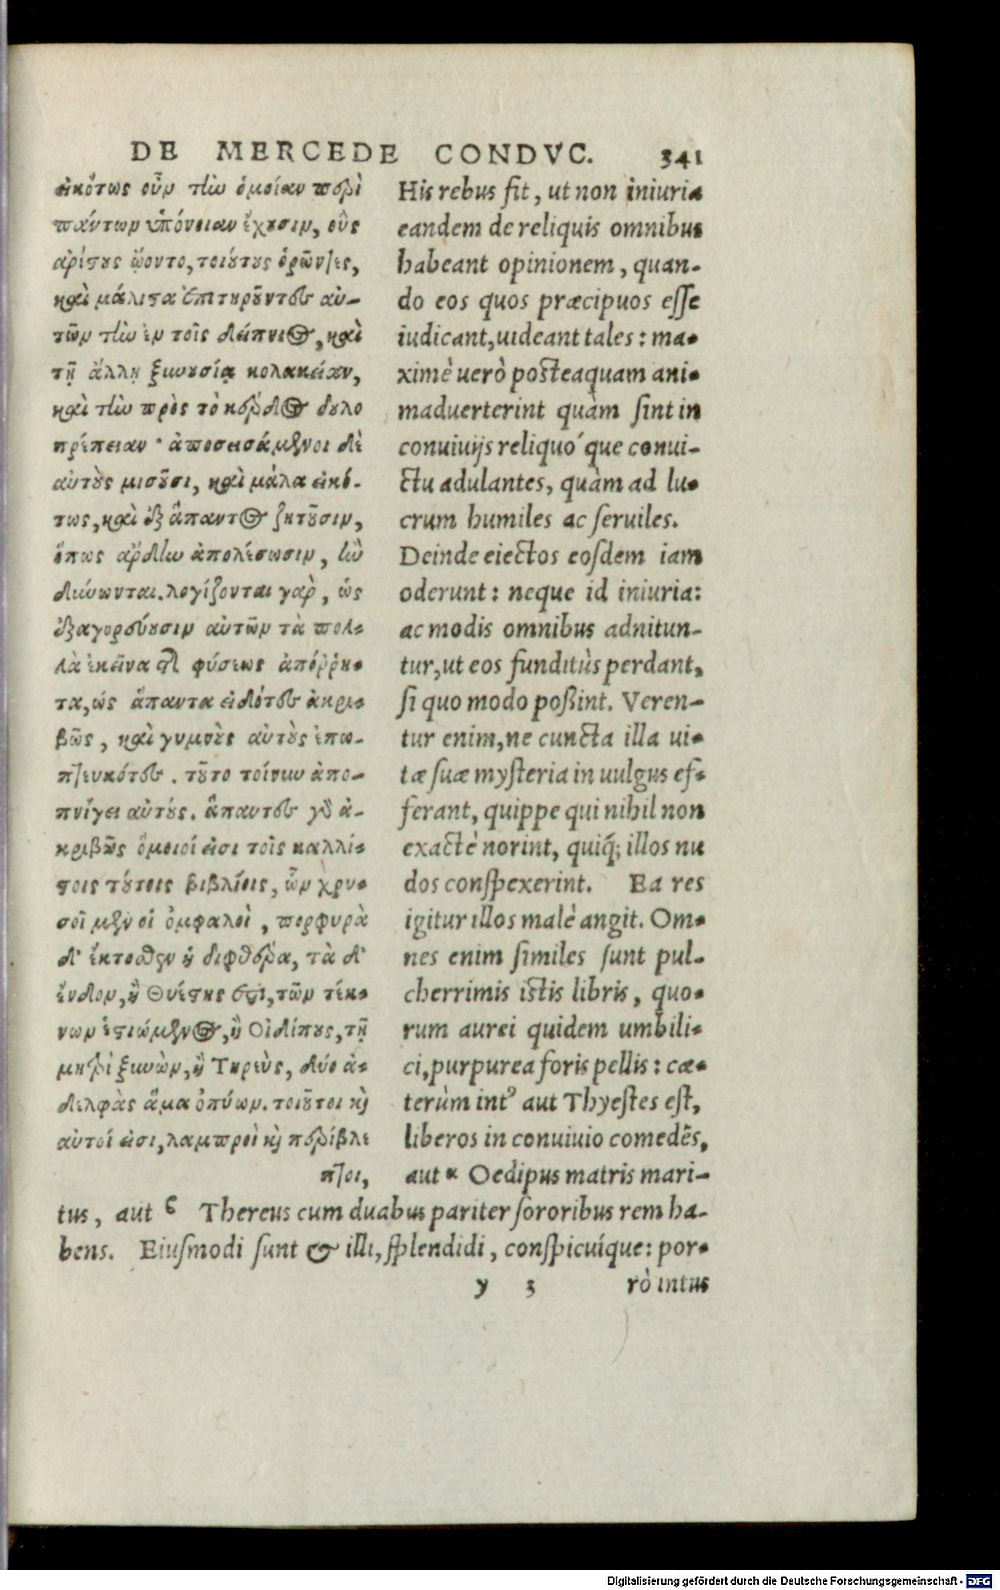 DE MERCEDE CONDVC. 341
εἰκότως οὖν τὴν ὁμοίαν περὶ
πάντων ὑπόνοιαν ἔχουσιν, οὓς
ἀρίστους ᾤοντο, τοιούτους ὁρῶντες,
καὶ μάλιστα ἐπιτηροῦντες αὐ-
τῶν τὴν ἐν τοῖς δείπνοις, καὶ
τῇ ἄλλῃ ξυνουσίᾳ κολακείαν,
καὶ τὴν πρὸς τὸ κέρδος δουλο
πρέπειαν· ἀποσεισάμενοι δὲ
αὐτοὺς μισοῦσι, καὶ μάλα εἰκό-
τως, καὶ ἐξ ἅπαντος ζητοῦσιν,
ὅπως ἄρδην ἀπολέσωσιν, ἢν
δύνωνται. λογίζονται γὰρ, ὡς
ἐξαγορεύουσιν αὐτῶν τὰ πολ-
λὰ ἐκεῖνα τῆς φύσεως ἀπόῤῥη-
τα, ὡς ἅπαντα εἰδότες ἀκρι-
βῶς, καὶ γυμνοὺς αὐτοὺς ἐπω-
πτευκότες. τοῦτο τοίνυν ἀπο-
πνίγει αὐτούς. ἅπαντες γὰρ ἀ-
κριβῶς ὅμοιοί εἰσι τοῖς καλλί-
στοις τούτοις βιβλίοις, ὧν χρυ-
σοῖ μὲν οἱ ὀμφαλοὶ, πορφυρᾶ
δ' ἔκτοσθεν ἡ διφθέρα, τὰ δ'
ἔνδον, ἢ Θυέστης ἐστὶ, τῶν τέκ-
νων ἑστιώμενος, ἢ Οἰδίπους, τῇ
μητρὶ ξυνὼν, ἢ Τηρεὺς, δύο ἀ-
δελφὰς ἅμα ὀπύων. τοιοῦτοι καὶ
αὐτοί εἰσι, λαμπροὶ καὶ περίβλε
πτοι,
His rebus fit, ut non iniuria
eandem de reliquis omnibus
habeant opinionem, quan-
do eos quos præcipuos esse
iudicant, uideant tales: ma-
ximè uerò posteaquam ani-
maduerterint quàm sint in
conuiuijs reliquó'que conui-
ctu adulantes, quàm ad lu-
crum humiles ac seruiles.
Deinde eiectos eosdem iam
oderunt: neque id iniuria:
ac modis omnibus adnitun-
tur, ut eos funditùs perdant,
si quo modo poßint. Veren-
tur enim, ne cuncta illa ui-
tæ suæ mysteria in uulgus ef-
ferant, quippe qui nihil non
exactè norint, quiq́; illos nu
dos conspexerint. Ea res
igitur illos malè angit. Om-
nes enim similes sunt pul-
cherrimis istis libris, quo-
rum aurei quidem umbili-
ci, purpurea foris pellis: cæ-
terùm intꝰ aut Thyestes est,
liberos in conuiuio comedẽs,
aut κ Oedipus matris mari-
tus, aut ϛ Thereus cum duabus pariter sororibus rem ha-
bens. Eiusmodi sunt & illi, splendidi, conspicuíque: por-
y 3 rò intus
Digitalisierung gefördert durch die Deutsche Forschungsgemeinschaft - DFG